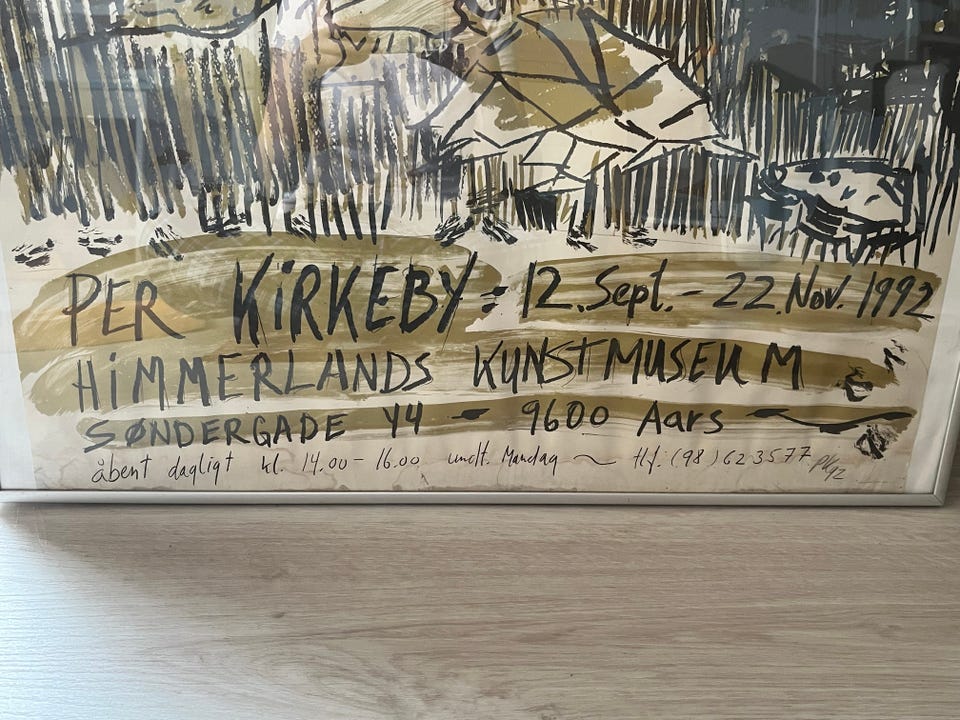 PER KiRKEBY - 12. Sept. - 22. Nov. 1992
HiMMERLANDS KUNSTMUSEUM
SØNDERGADE 44 - 9600 Aars
åbent dagligt kl. 14.00 - 16.00 undt. Mandag ~ tlf: (98) 623577 PK92